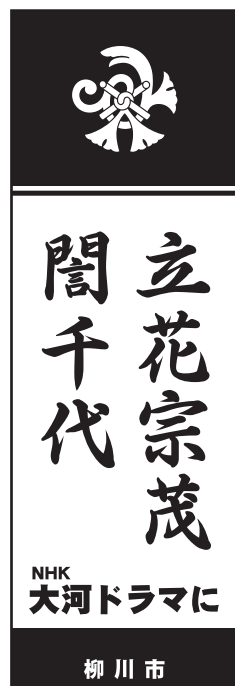 立花宗茂
誾千代
NHK
大河ドラマに
柳川市